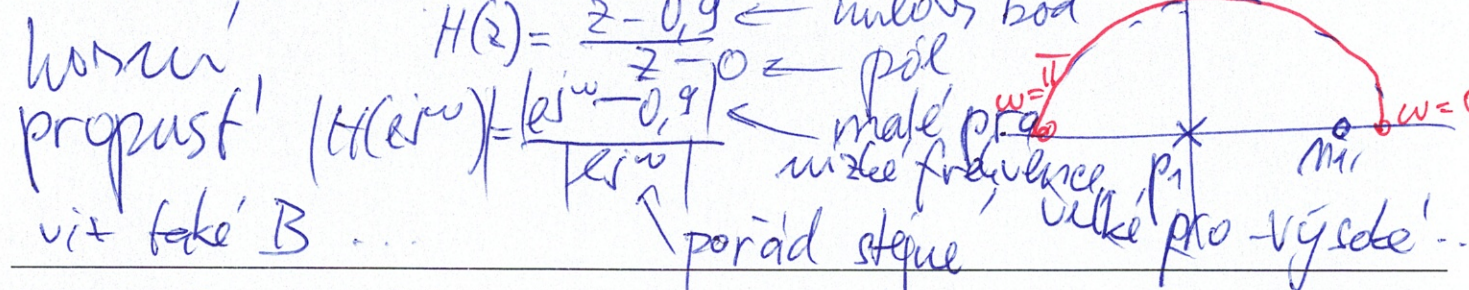 horní
propust
viz také B ...
H(z) = z - 0,9 ← nulový bod
z - 0 ← pól
|H(e^jω)| = |e^jω - 0,9| ← malé pro
nízké frekvence, velké pro vysoké ...
|e^jω|
pořád stejné
ω=π
ω=
p1
n1